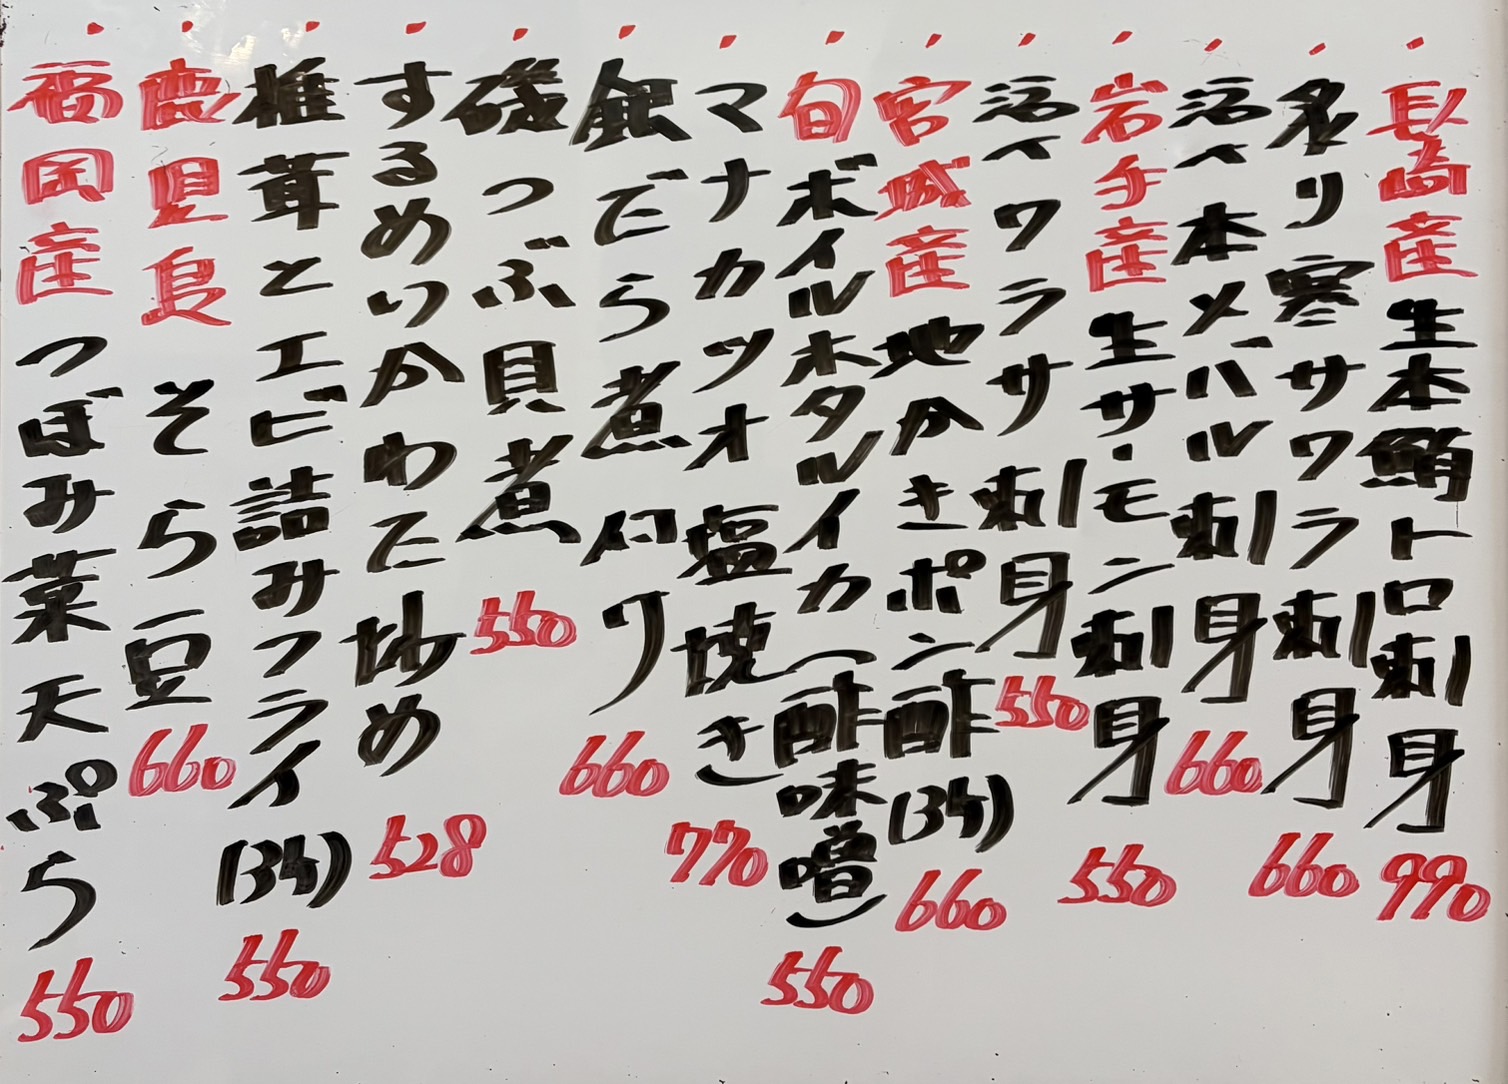 ・長崎産生本鮪トロ刺身 990
・炙り寒サワラ刺身 660
・活〆本メバル刺身 660
・岩手産生サーモン刺身 550
・活〆ワラサ刺身 550
・宮城産地かきポン酢(3ケ) 660
・旬ボイルホタルイカ(酢味噌) 550
・マナカツオ塩焼き 770
・銀だら煮付け 660
・磯つぶ貝煮 550
・するめいかわた炒め 528
・椎茸とエビ詰みフライ(3ケ) 550
・鹿児島 そら豆 660
・福岡産つぼみ菜天ぷら 550